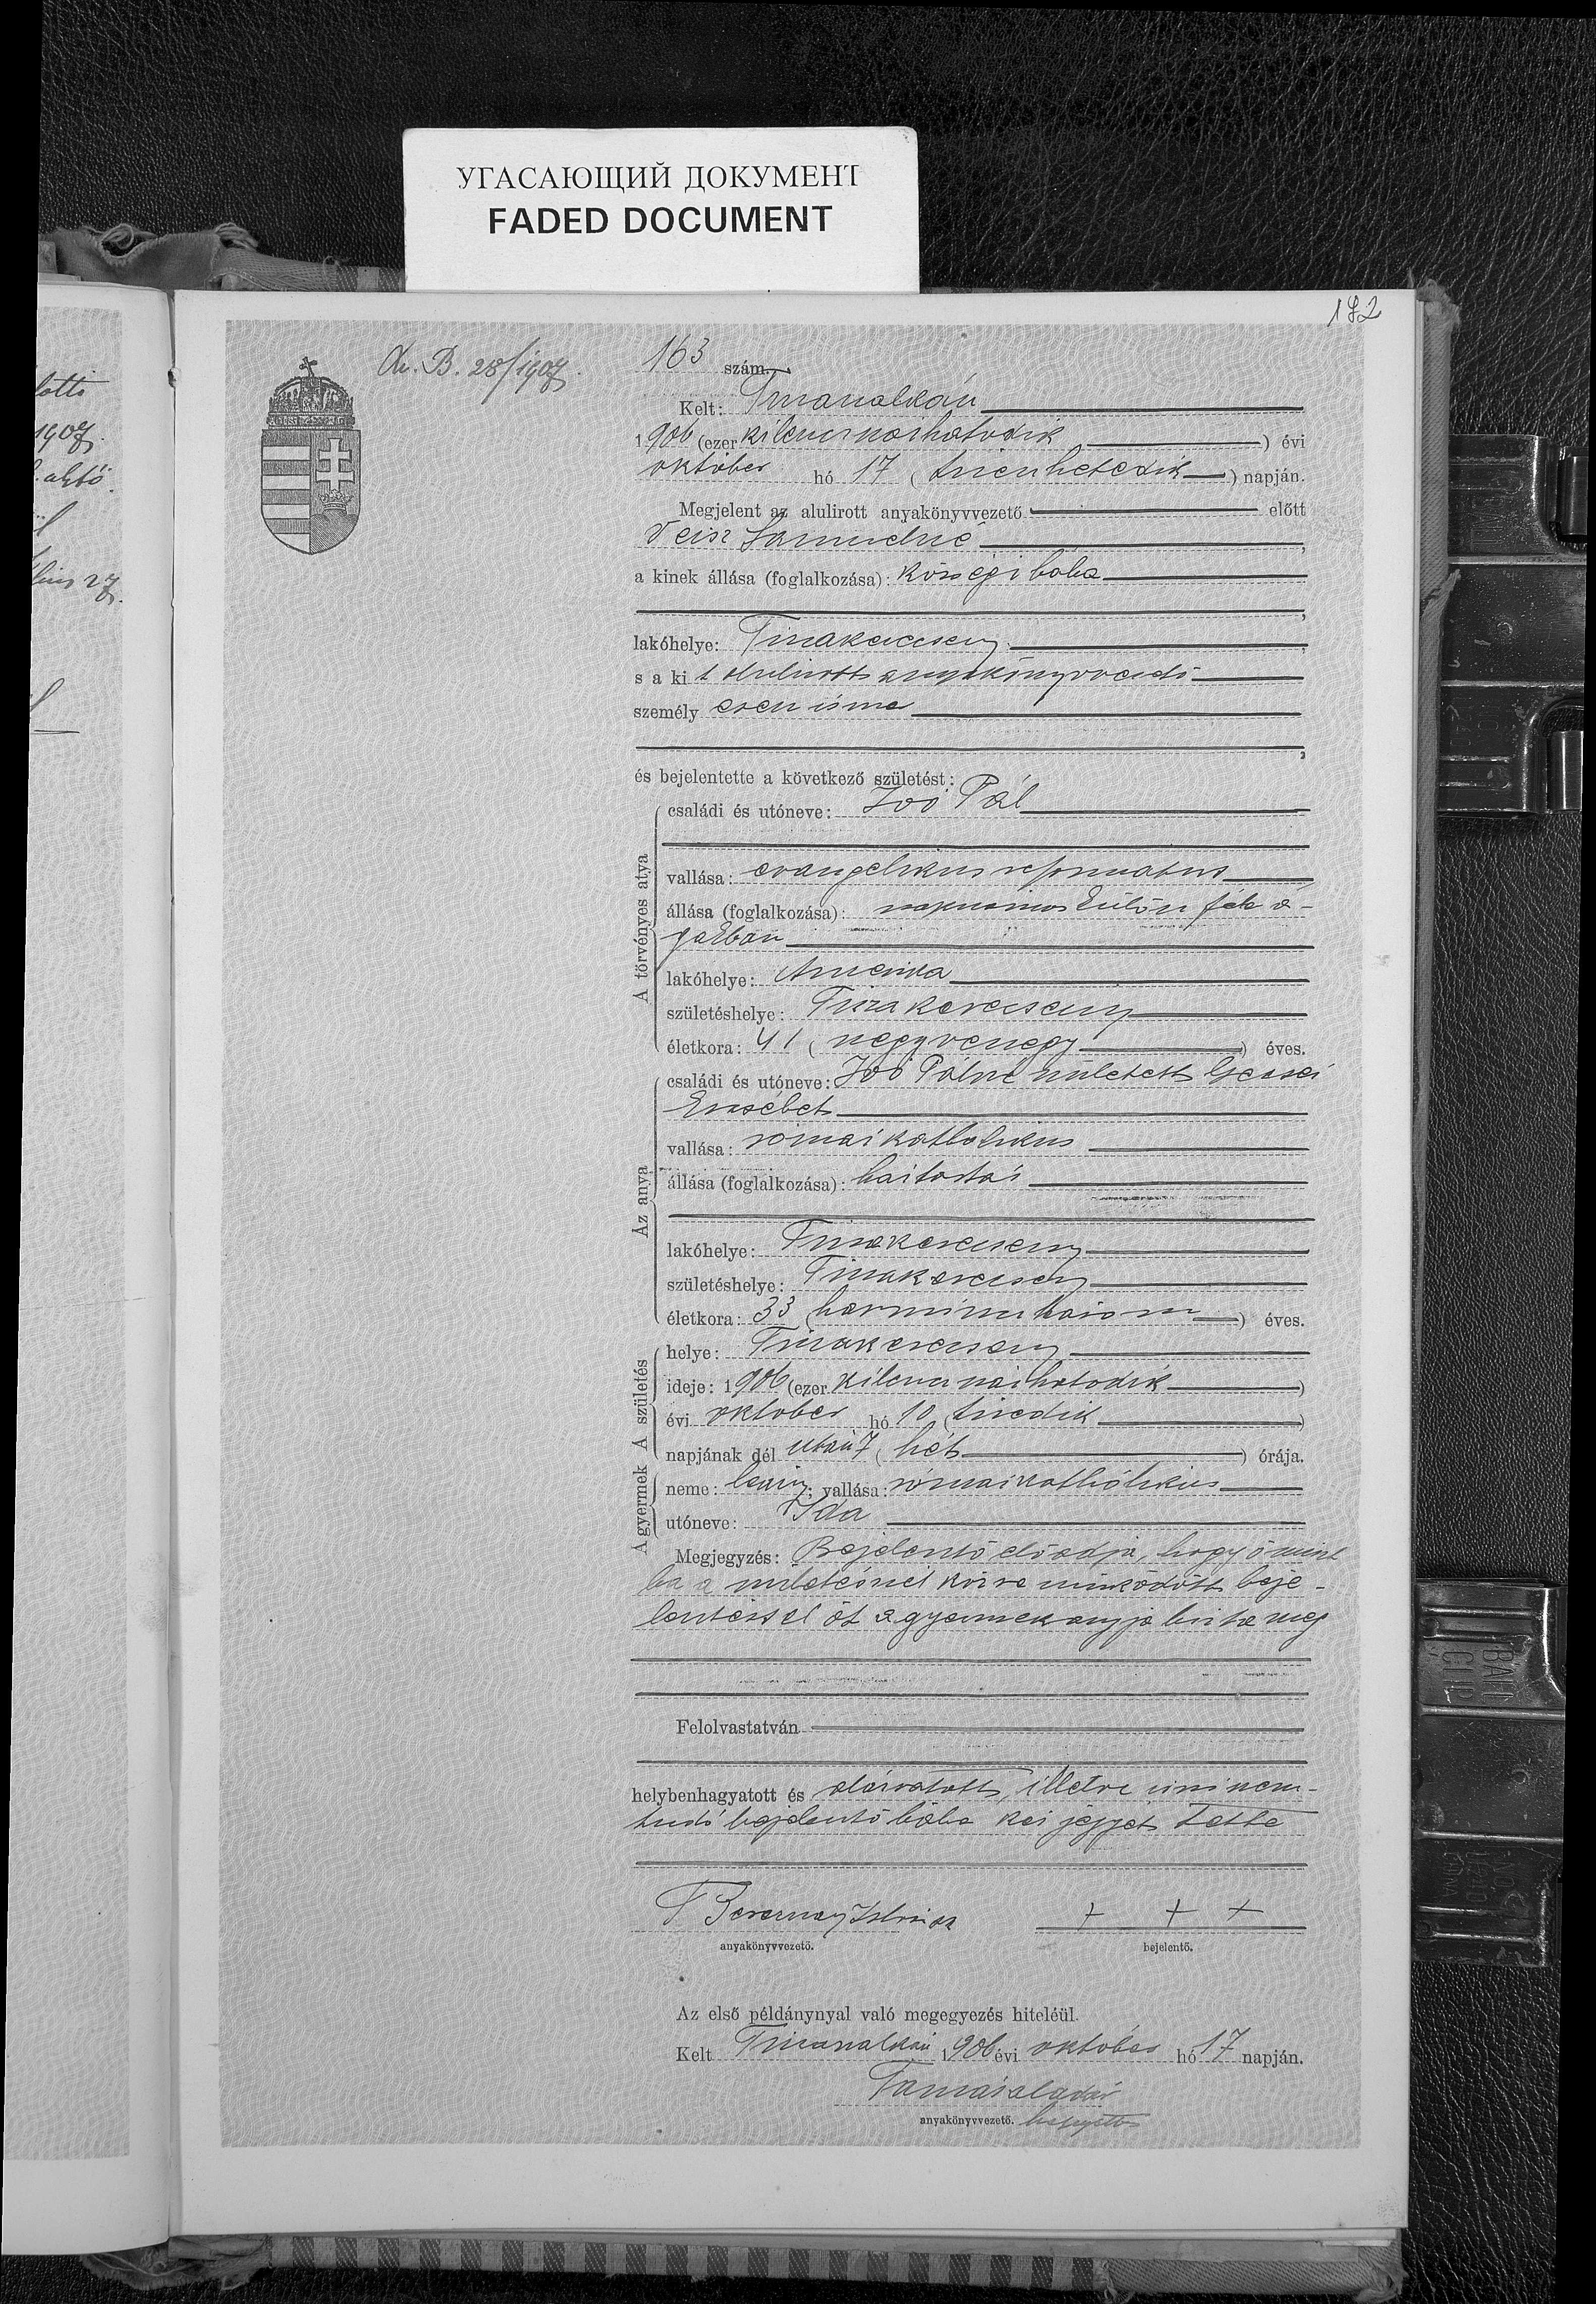 УГАСАЮЩИЙ ДОКУМЕНТ
FADED DOCUMENT
182
B. 28/1907.
163 szám.
Kelt:
1906 (ezer kilencszázhatodik) évi
október hó 17 (tizenhetedik) napján.
Megjelent az alulirott anyakönyvvezető előtt
Veisz Samuelné,
a kinek állása (foglalkozása): községi bába
,
lakóhelye: Tiszakerecseny,
s a ki t alulirott anyakönyvvezető
személyesen ismer
,
és bejelentette a következő születést:
A törvényes atya
családi és utóneve: Joó Pál
vallása: evangelikus reformatus
állása (foglalkozása): napszámos
lakóhelye: Amerika
születéshelye: Tiszakerecseny
életkora: 41 (negyvenegy) éves.
Az anya
családi és utóneve: Joó Pálné született
Erzsébet
vallása: római katholikus
állása (foglalkozása): háztartás
lakóhelye: Tiszakerecseny
születéshelye: Tiszakerecseny
életkora: 33 (harminchárom) éves.
A születés
helye: Tiszakerecseny
ideje: 1906 (ezer kilencszázhatodik)
évi október hó 10 (tizedik)
napjának dél után 7 (hét) órája.
A gyermek
neme: leány; vallása: római katholikus
utóneve: Ida
Megjegyzés: Bejelentő előadja, hogy ő mint
bába a születésnél közre működött beje-
lentéssel őt a gyermek anyja bízta meg
Felolvastatván
helybenhagyatott és aláiratott, illetve irni nem
tudó bejelentő bába kéz jegyét tette
István
+ + +
anyakönyvvezető.
bejelentő.
Az első példánynyal való megegyezés hiteléül.
Kelt 1906 évi október hó 17 napján.
Tamás Aladár
anyakönyvvezető. helyettes